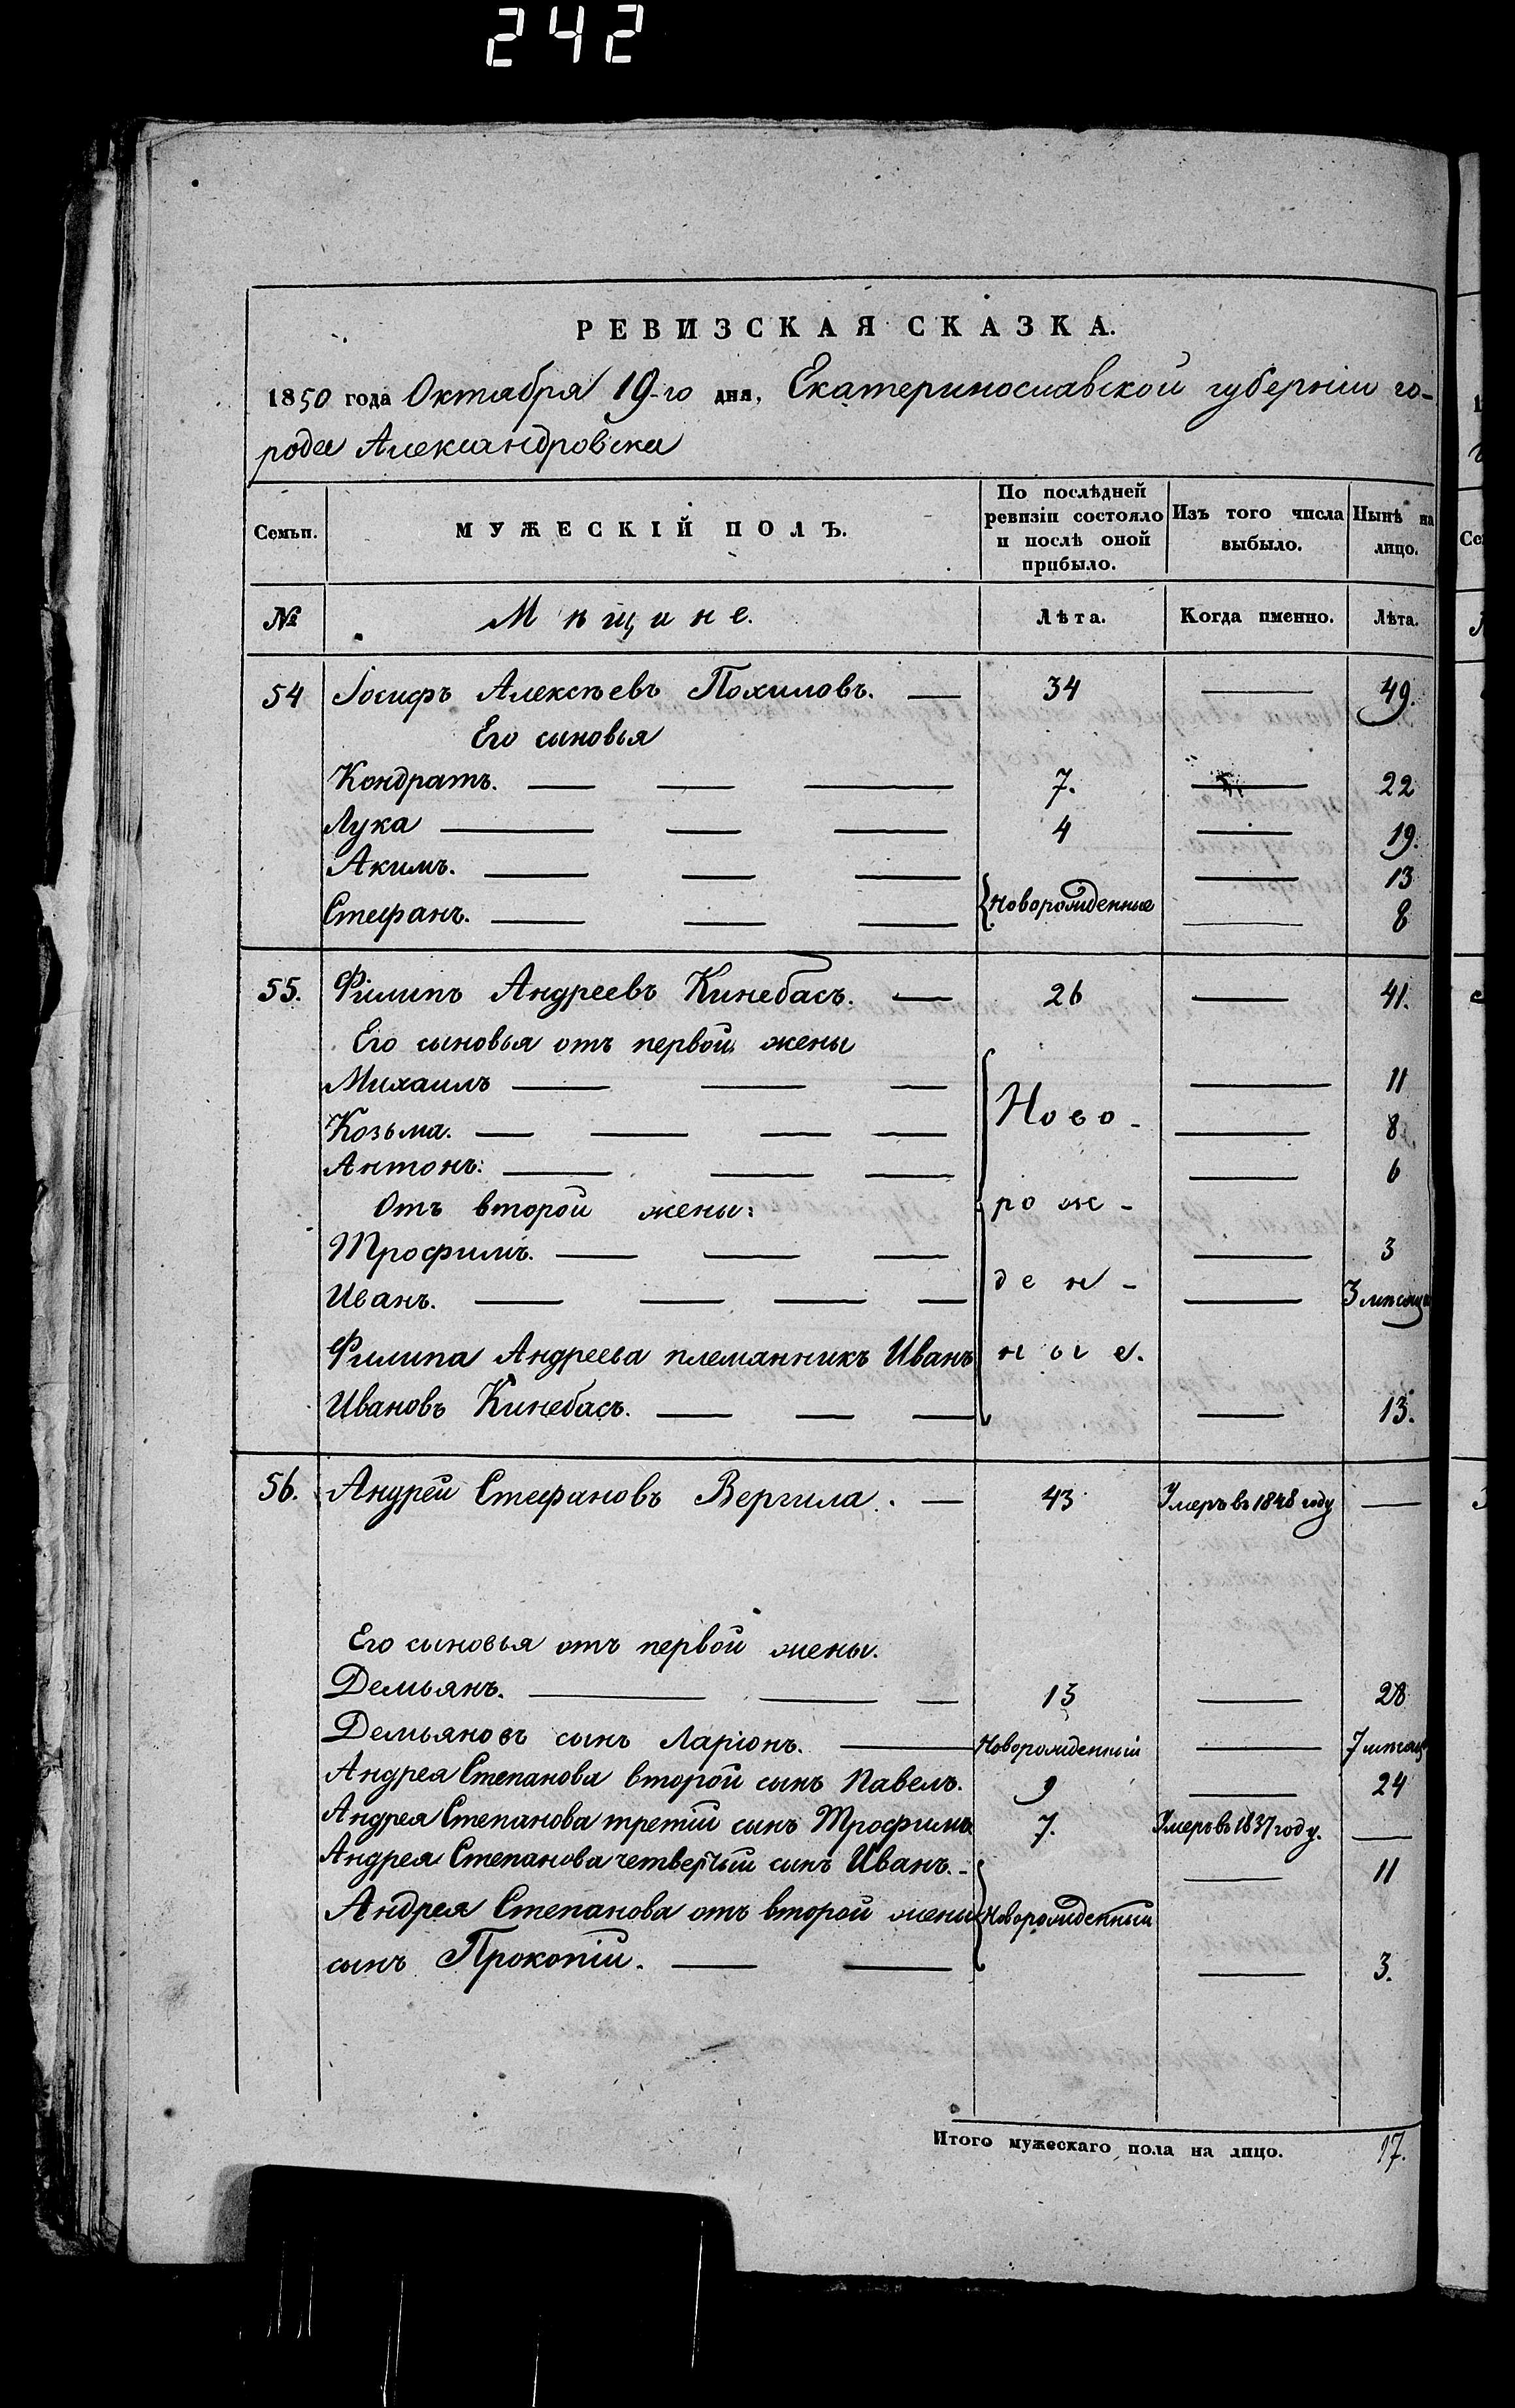 242
РЕВИЗСКАЯ СКАЗКА.
1850 года Октября 19-го дня, Екатеринославской губерніи го-
рода Александровска
Семьи. МУЖЕСКІЙ ПОЛЪ. По послѣдней ревизіи состояло и послѣ оной прибыло. Изъ того числа выбыло. Нынѣ на лицо.
№ Мѣщине. Лѣта. Когда именно. Лѣта.
54 Іосифъ Алексѣевъ Похиловъ. — 34 — 49.
Его сыновья
Кондратъ. — — — 7. — 22
Лука — — — 4 — 19.
Акимъ. — — — — 13
Стефанъ. — — — Новорожденные — 8
55. Филипъ Андреевъ Кинебасъ. — 26 — 41.
Его сыновья отъ первой жены
Михаилъ — — — — 11
Козьма. — — — — Ново- — 8
Антонъ: — — — — 6
Отъ второй жены: рож-
Трофимъ. — — — — 3
Иванъ. — — — — ден- — 3 мѣсяца
Филипа Андреева племянникъ Иванъ ные.
Ивановъ Кинебасъ. — — — — 13.
56. Андрей Стефановъ Вергила. — 43 Умеръ въ 1848 году —
Его сыновья отъ первой жены.
Демьянъ. — — — 13 — 28
Демьяновъ сынъ Ларіонъ. — Новорожденный — 7 мѣсяц
Андрея Степанова второй сынъ Павелъ. 9 — 24
Андрея Степанова третій сынъ Трофимъ 7. Умеръ въ 1837 году. —
Андрея Степанова четвертый сынъ Иванъ. - — 11
Андрея Степанова отъ второй жены Новорожденный
сынъ Прокопій. — — — 3.
Итого мужескаго пола на лицо. 17.